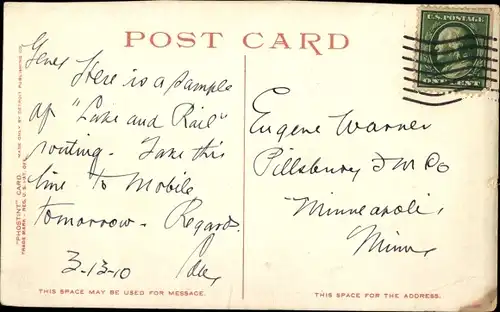 POST CARD
U.S. POSTAGE
ONE CENT
Gene: Here is a sample
of "Lake and Rail"
routing. Take this
line to Mobile
tomorrow. Regards.
3-13-10
Eugene Warner
Pillsbury F M Co
Minneapolis,
Minn,
"PHOSTINT" CARD
MADE ONLY BY DETROIT PUBLISHING CO.
THIS SPACE MAY BE USED FOR MESSAGE.
THIS SPACE FOR THE ADDRESS.